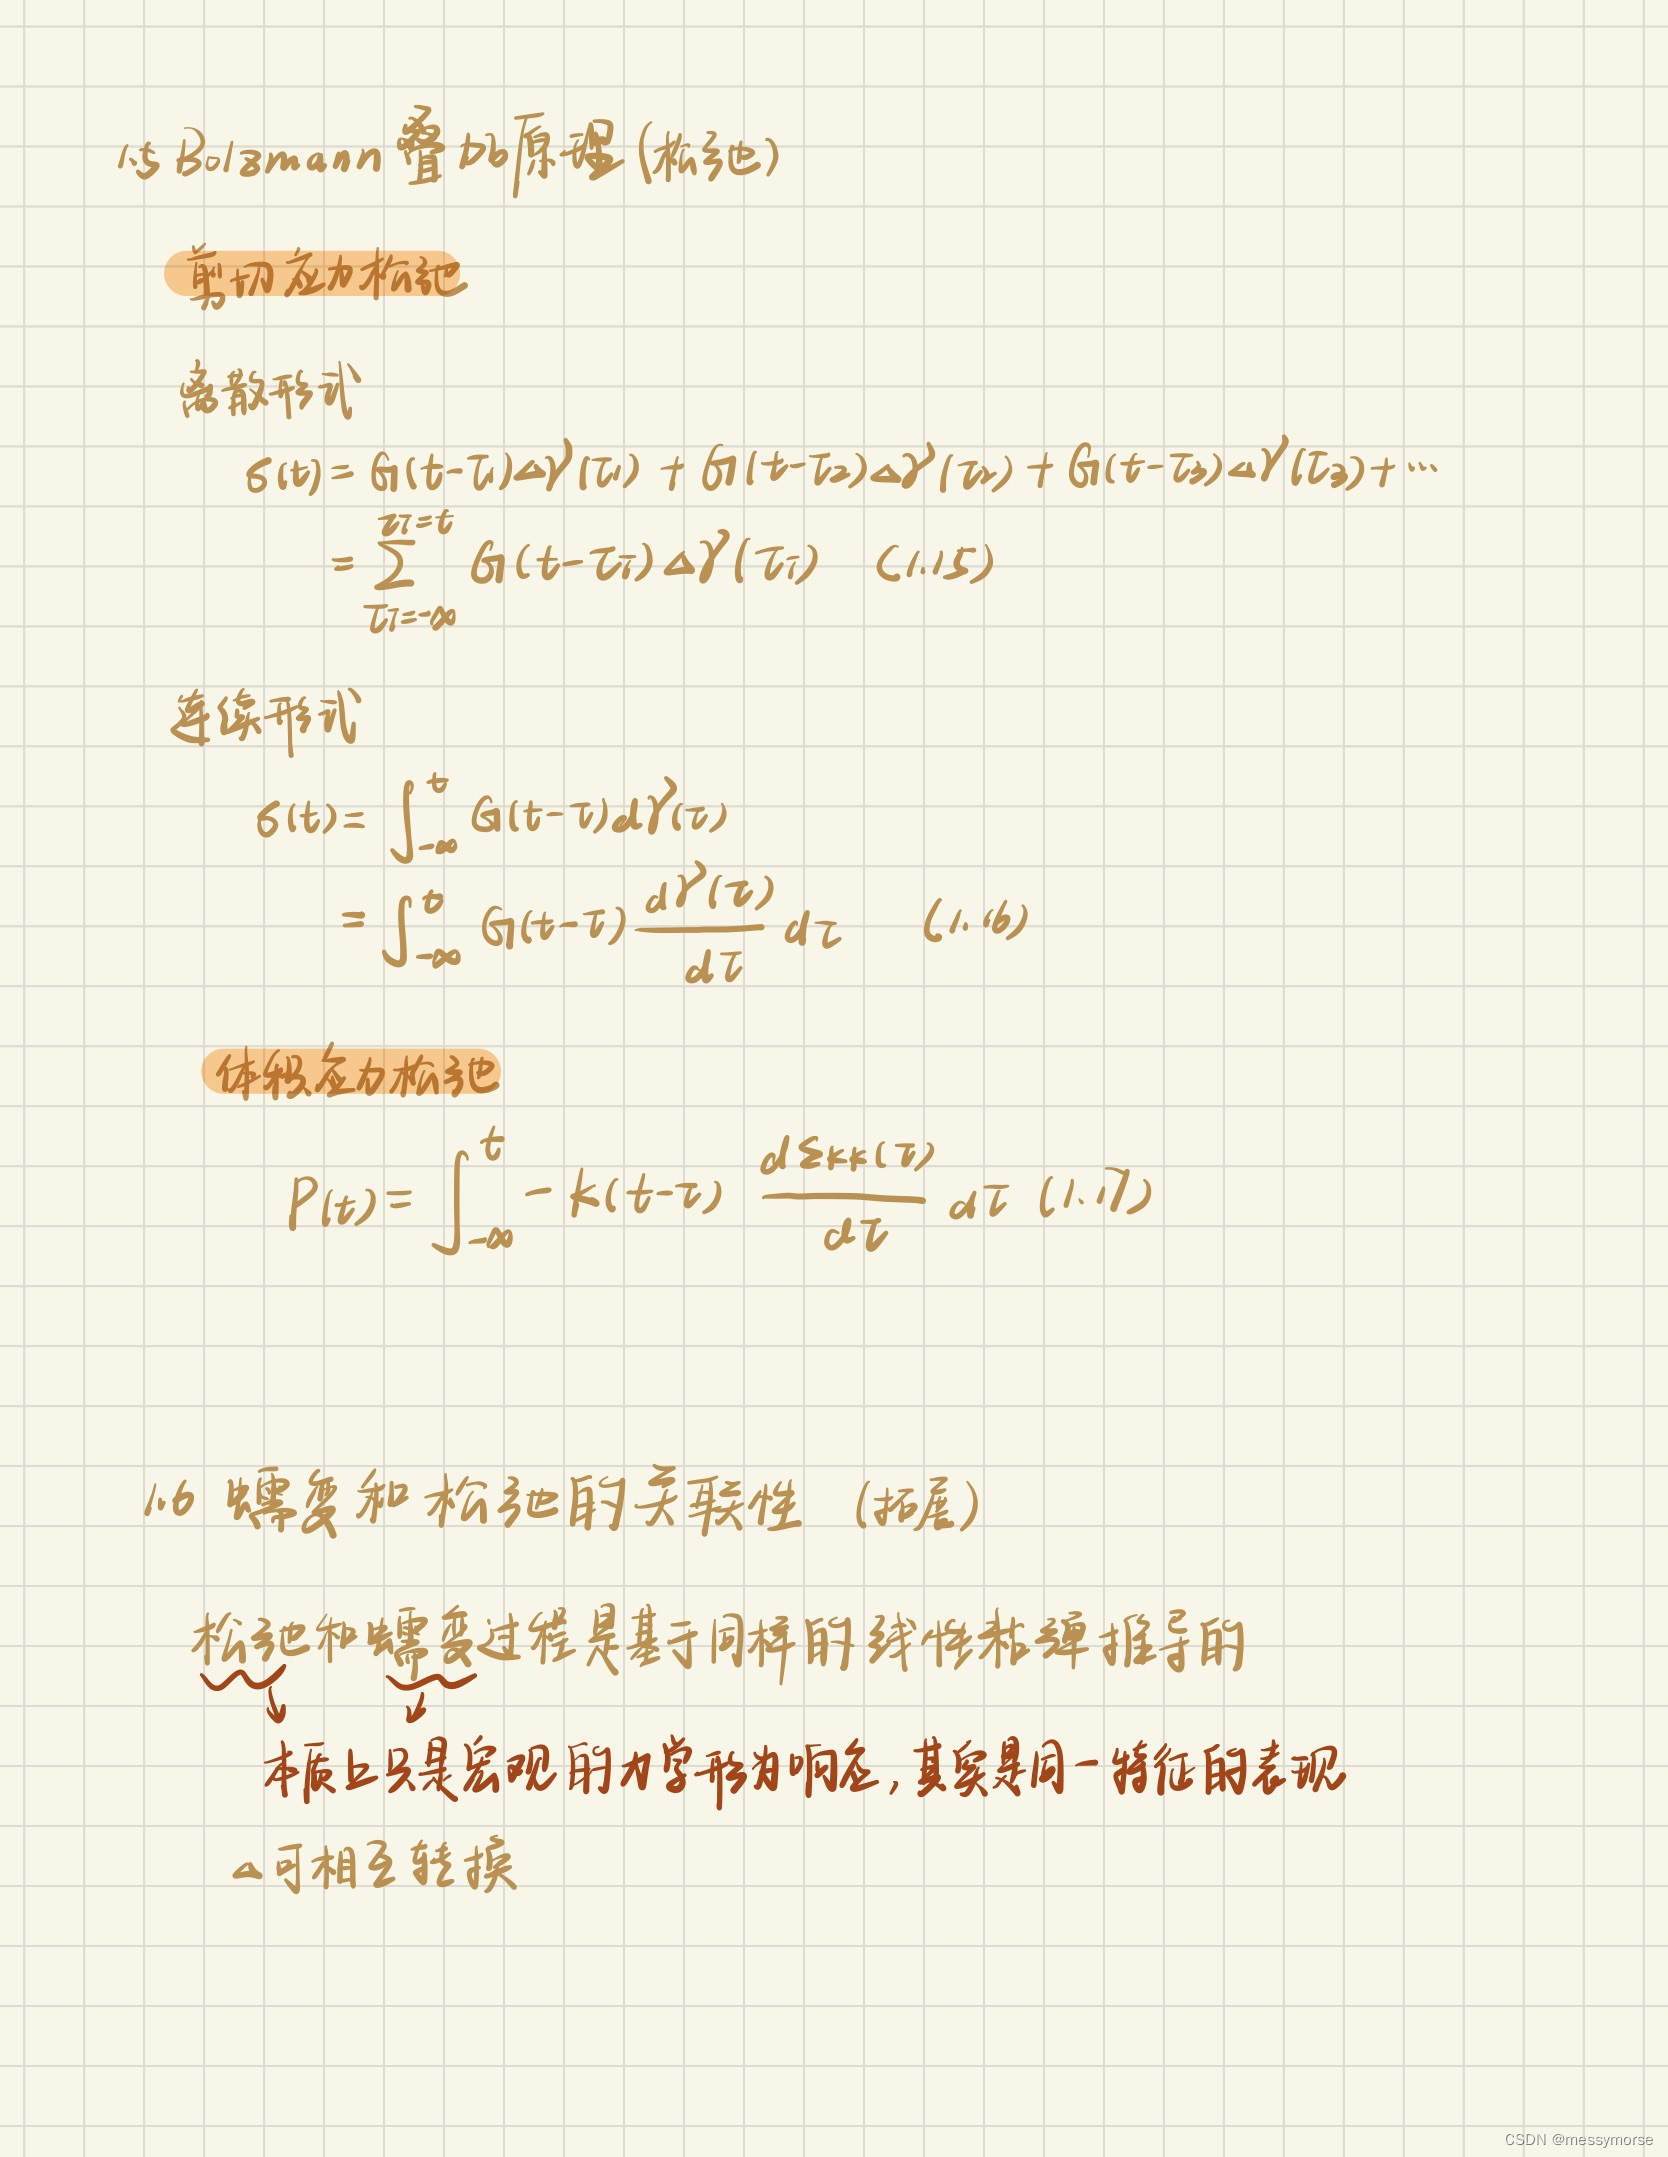 1.5 Bolzmann 叠加原理(松弛)
剪切应力松弛
离散形式
σ(t) = G(t-τ1)Δγ(τ1) + G(t-τ2)Δγ(τ2) + G(t-τ3)Δγ(τ3) + ⋯
= ∑_{τi=-∞}^{τi=t} G(t-τi)Δγ(τi) (1.15)
连续形式
σ(t) = ∫_{-∞}^{t} G(t-τ)dγ(τ)
= ∫_{-∞}^{t} G(t-τ) dγ(τ)/dτ dτ (1.16)
体积应力松弛
P(t) = ∫_{-∞}^{t} -k(t-τ) dεkk(τ)/dτ dτ (1.17)
1.6 蠕变和松弛的关联性 (拓展)
松弛和蠕变过程是基于同样的线性粘弹推导的
↓ ↓
本质上只是宏观的力学形为响应,其实是同一特征的表现
△可相互转换
CSDN @messymorse